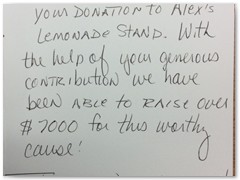 your Donation to Alex's
Lemonade Stand. With
the help of your generous
contribution we have
been able to raise over
$7000 for this worthy
cause!